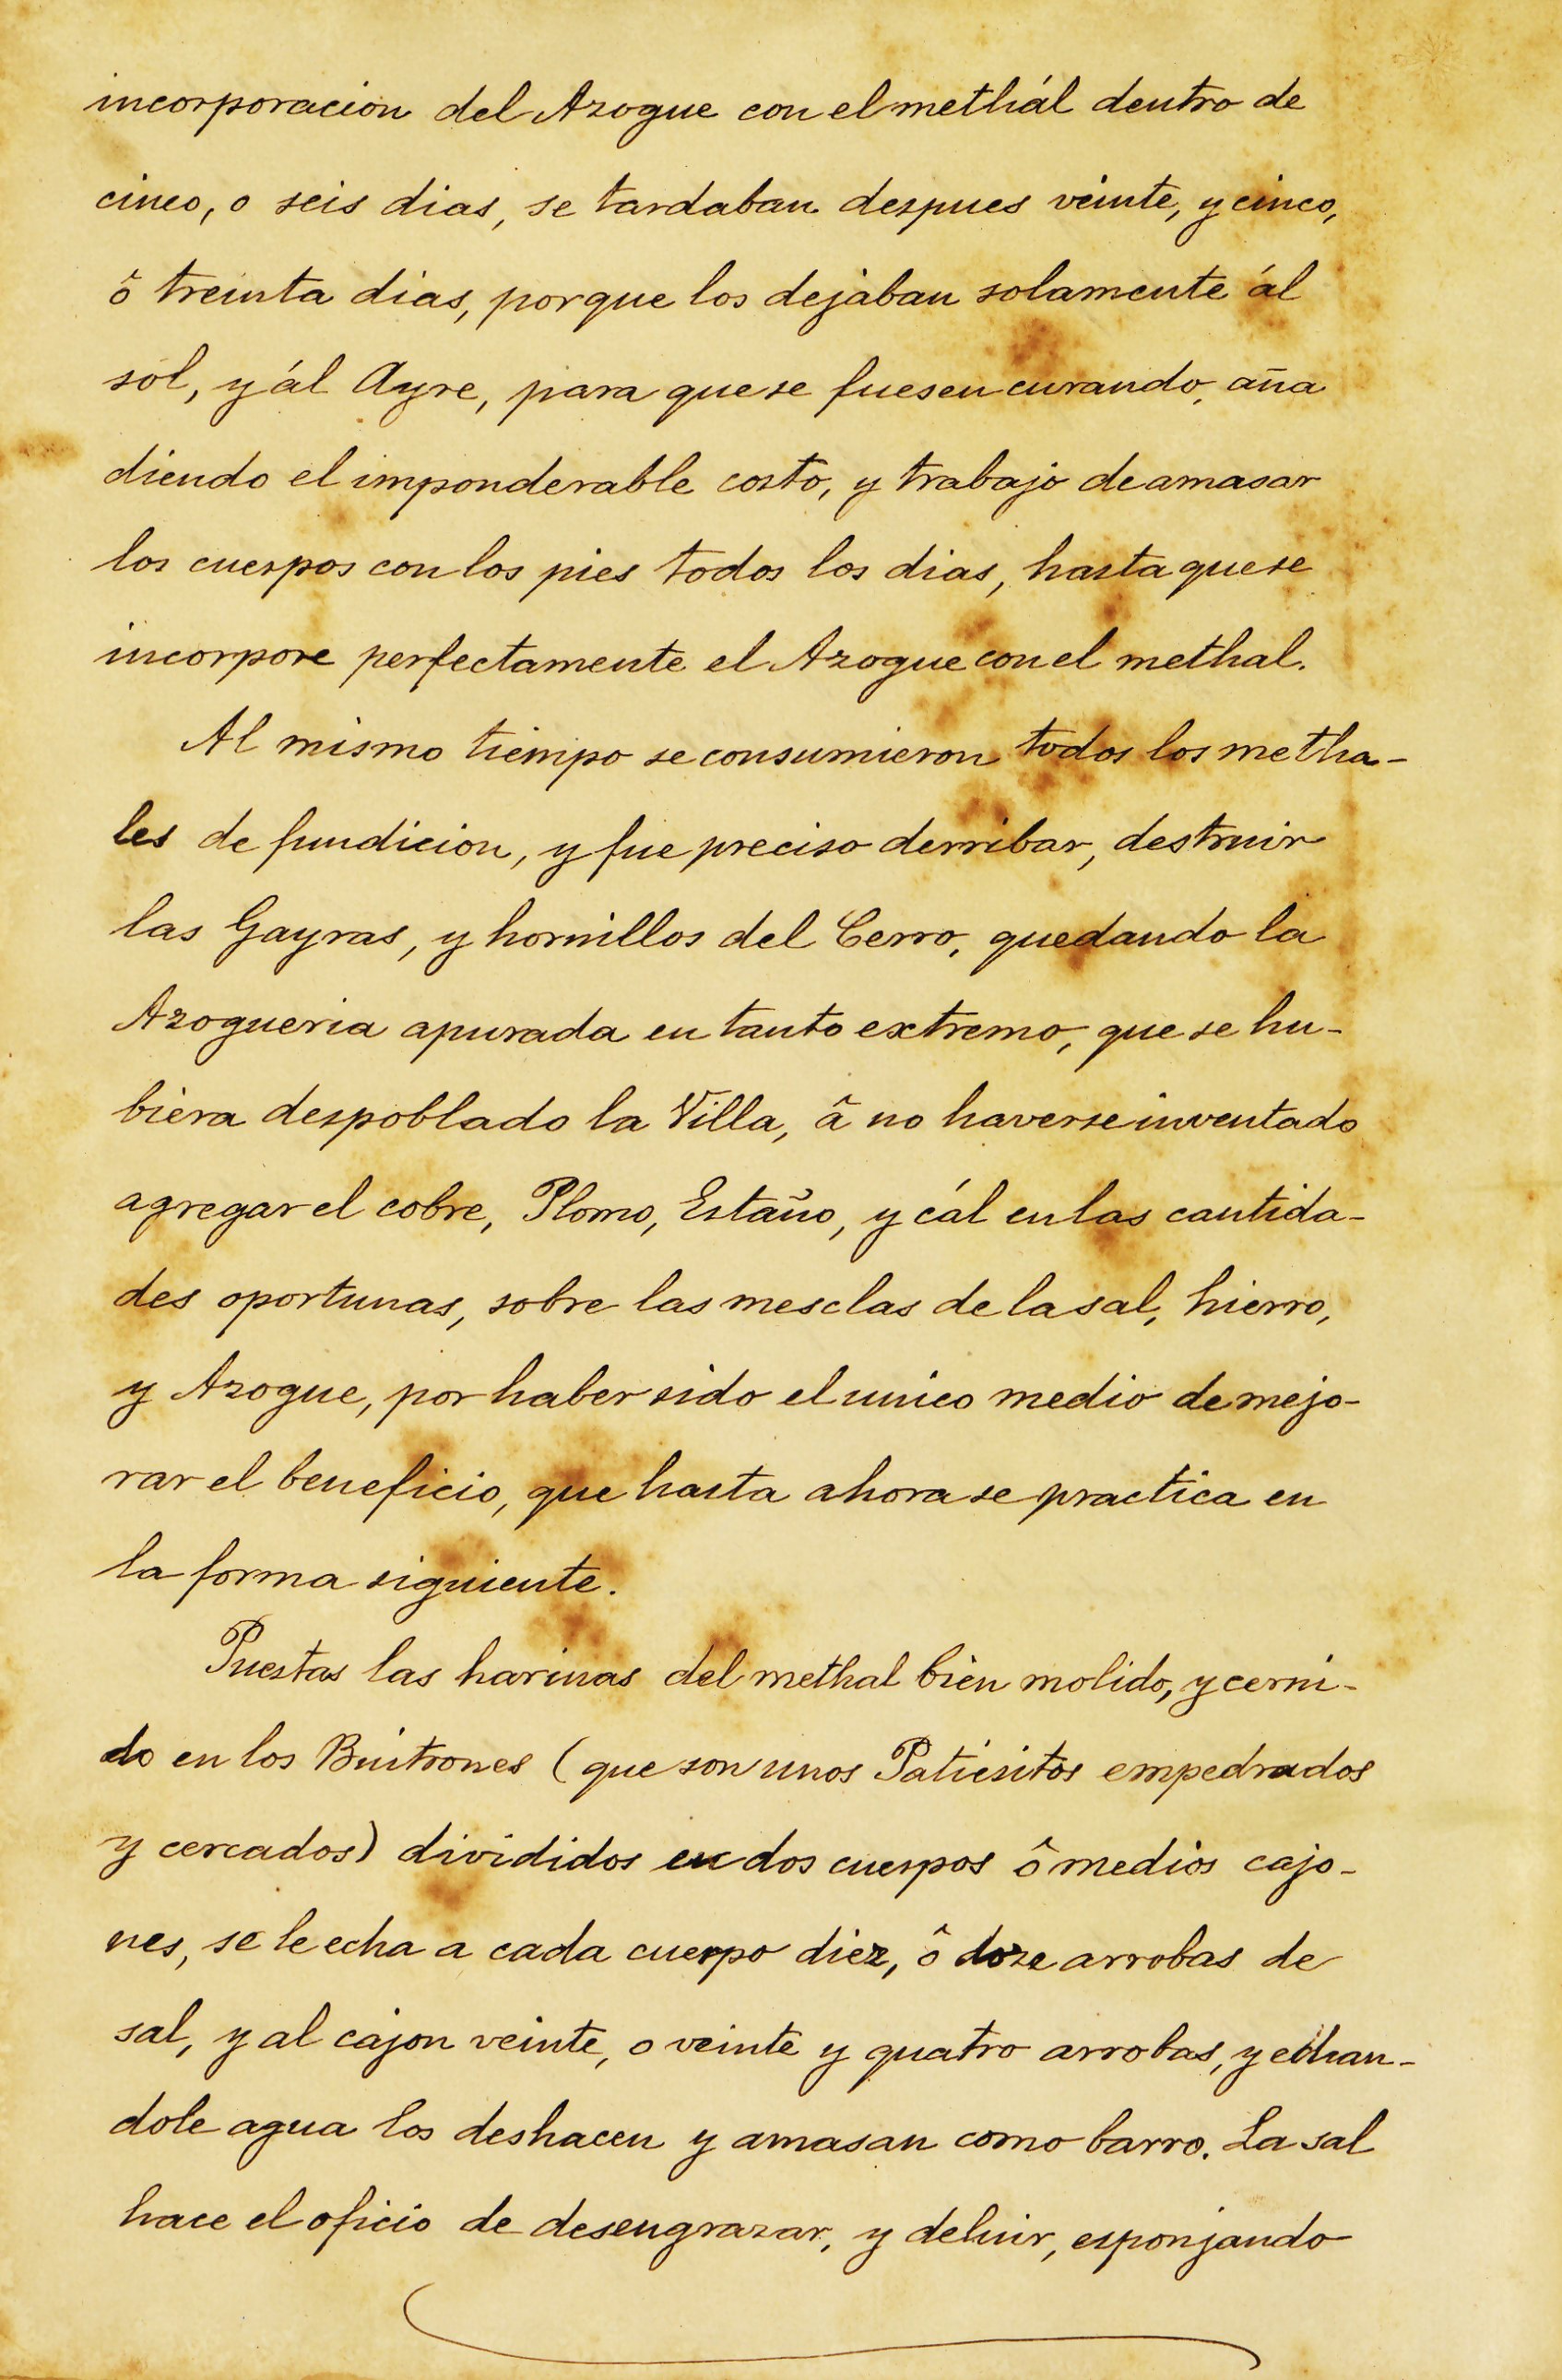 incorporacion del Azogue con el methál dentro de
cinco, o seis dias, se tardaban despues veinte, y cinco,
ô treinta dias, porque los dejaban solamente ál
sol, y ál Ayre, para que se fuesen curando, aña
diendo el imponderable costo, y trabajo de amasar
los cuerpos con los pies todos los dias, hasta que se
incorpore perfectamente el Azogue con el methal.
Al mismo tiempo se consumieron todos los metha-
les de fundicion, y fue preciso derribar, destruir
las Gayras, y hornillos del Cerro, quedando la
Azogueria apurada en tanto extremo, que se hu-
biera despoblado la Villa, â no haverse inventado
agregar el cobre, Plomo, Estaño, y cál en las cantida-
des oportunas, sobre las mesclas de la sal, hierro,
y Azogue, por haber sido el unico medio de mejo-
rar el beneficio, que hasta ahora se practica en
la forma siguiente.
Puestas las harinas del methal bien molido, y cerni-
do en los Buitrones (que son unos Patiesitos empedrados
y cercados) divididos en dos cuerpos ô medios cajo-
nes, se le echa a cada cuerpo diez, ô doze arrobas de
sal, y al cajon veinte, o veinte y quatro arrobas, y echan-
dole agua los deshacen y amasan como barro. La sal
hace el oficio de desengrazar, y deluir, esponjando